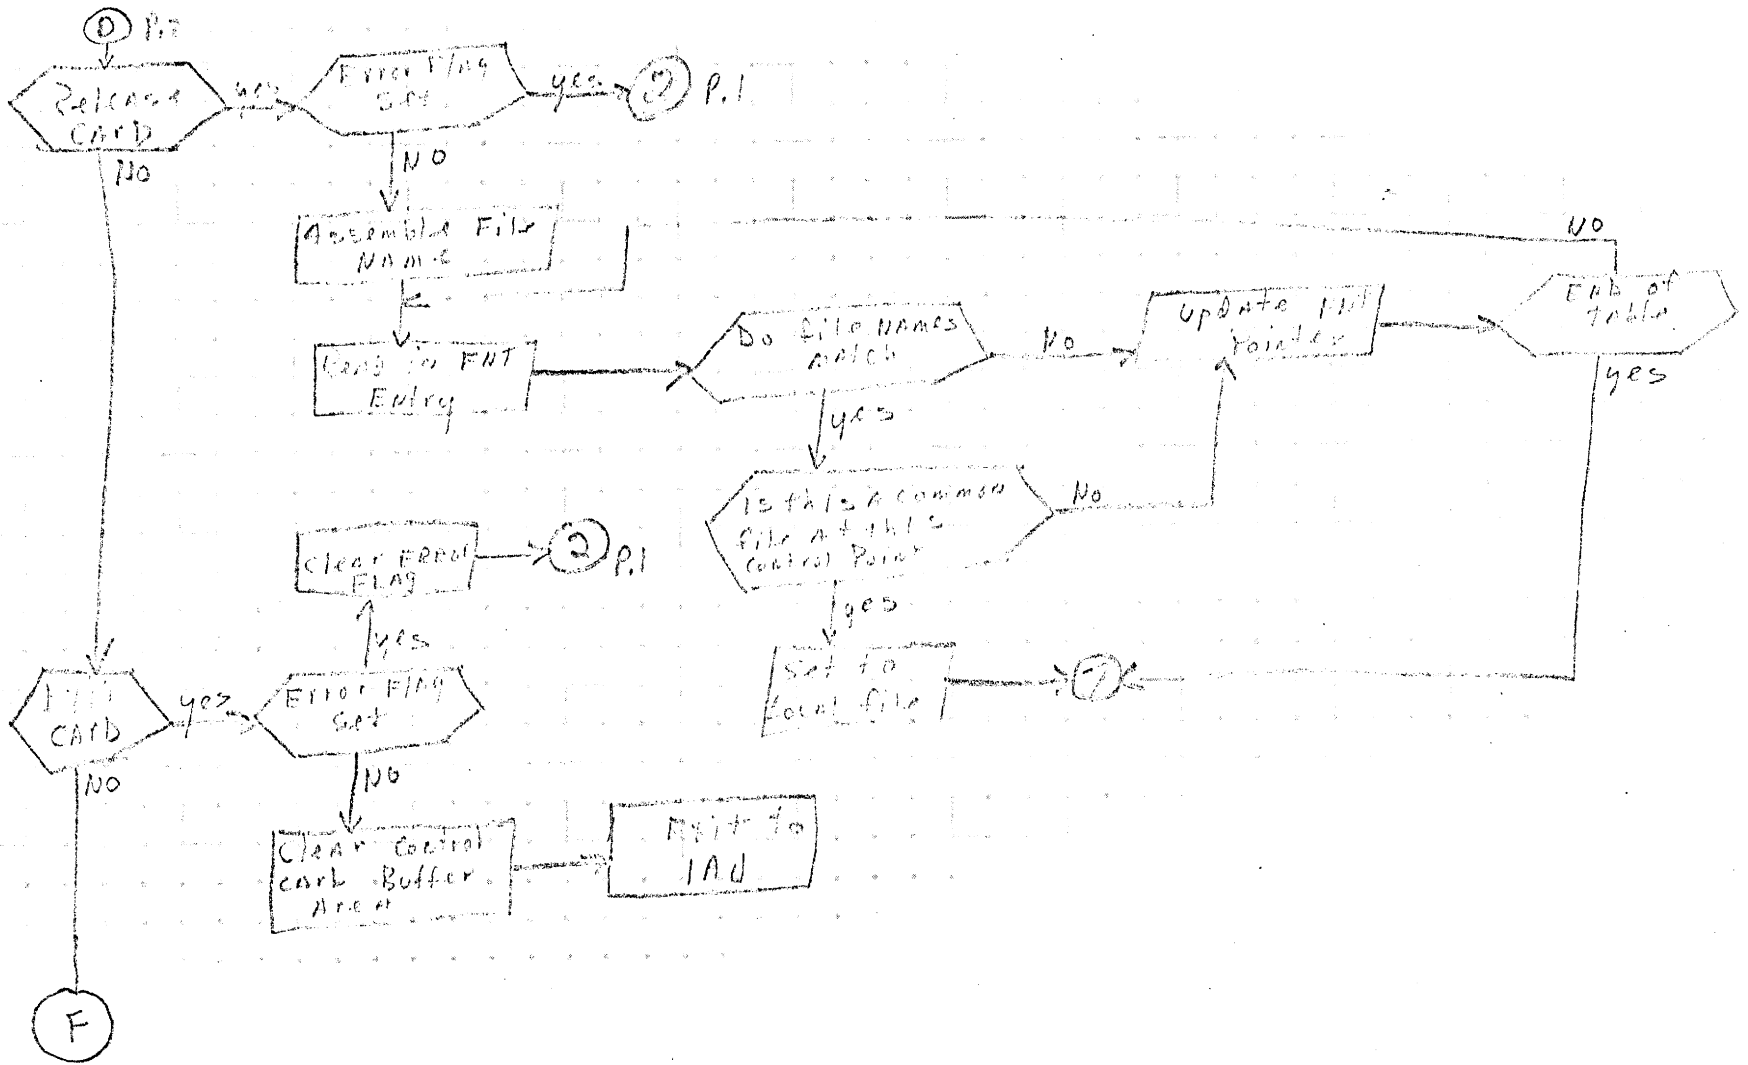 D P.
Release
CARD
yes
Error Flag
Set
yes
2 P.1
No
NO
Assemble File
NAME
NO
Read in FNT
Entry
Do file NAMES
match
No
Update FNT
Pointer
End of
table
yes
yes
Is this A common
file At this
Control Point
No
Clear ERROR
FLAg
2 P.1
yes
yes
Set to
Local file
CARD
yes
Error Flag
Set
NO
NO
Clear Control
CArd Buffer
AreA
Exit to
1AJ
F